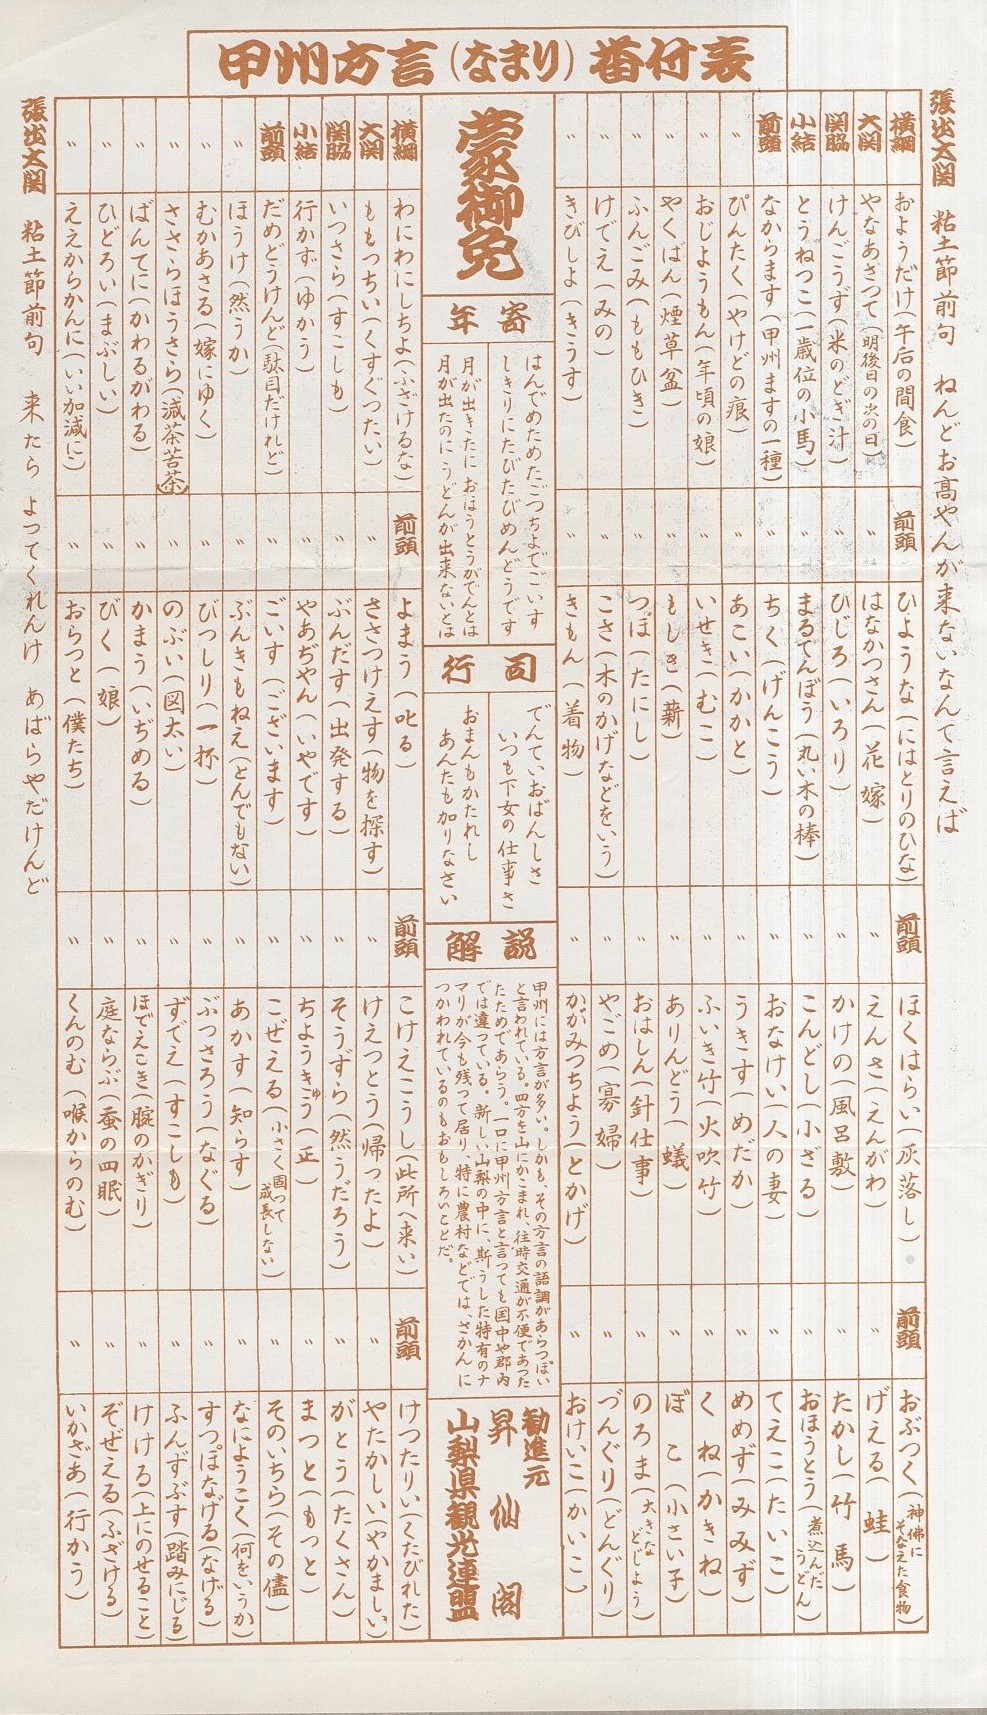 甲州方言(なまり)番付表
張出大関 粘土節前句 ねんどお高やんが来ないなんて言えば
横綱 おようだけ(午后の間食)
大関 やなあさつて(明後日の次の日)
関脇 けんごうず(米のとぎ汁)
小結 とうねつこ(一歳位の小馬)
前頭 なからます(甲州ますの一種)
〃 ぴんたく(やけどの痕)
〃 おじようもん(年頃の娘)
〃 やくばん(煙草盆)
〃 ふんごみ(ももひき)
〃 けでえ(みの)
〃 きびしよ(きうす)
前頭 ひような(にはとりのひな)
〃 はなかつさん(花嫁)
〃 ひじろ(いろり)
〃 まるてんぼう(丸い木の棒)
〃 ちく(げんこう)
〃 あこい(かかと)
〃 いせき(むこ)
〃 もしき(薪)
〃 つぼ(たにし)
〃 こさ(木のかげなどをいう)
〃 きもん(着物)
前頭 ほくはらい(灰落し)
〃 えんさ(えんがわ)
〃 かけの(風呂敷)
〃 こんどし(小ざる)
〃 おなけい(人の妻)
〃 うきす(めだか)
〃 ふいき竹(火吹竹)
〃 ありんどう(蟻)
〃 おはしん(針仕事)
〃 やごめ(寡婦)
〃 かがみつちよう(とかげ)
前頭 おぶつく(神佛にそなえた食物)
〃 げえる(蛙)
〃 たかし(竹馬)
〃 おほうとう(煮込んだうどん)
〃 てえこ(たいこ)
〃 めめず(みみず)
〃 くね(かきね)
〃 ぼこ(小さい子)
〃 のろま(大きなどじよう)
〃 づんぐり(どんぐり)
〃 おけいこ(かいこ)
蒙御免
年寄
はんでめためたごつちよでごいす
しきりにたびたびめんどうです
月が出きたに おほうとうがでんとは
月が出たのに うどんが出来ないとは
行司
でんていおばんしさ
いつも下女の仕事さ
おまんもかたれし
あんたも加りなさい
解説
甲州には方言が多い。しかも、その方言の語調があらつぽい
と言われている。四方を山にかこまれ、往時交通が不便であつた
たためであらう。一口に甲州方言と言つても国中や郡内
では違っている。新しい山梨の中に、斯うした特有のナ
マリが今も残つて居り、特に農村などでは、さかんに
つかわれているのもおもしろいことだ。
勧進元
昇仙閣
山梨県観光連盟
横綱 わにわにしちよ(ふざけるな)
大関 ももつちい(くすぐつたい)
関脇 いつさら(すこしも)
小結 行かず(ゆかう)
前頭 だめどうけんど(駄目だけれど)
〃 ほうけ(然うか)
〃 むかあさる(嫁にゆく)
〃 ささらほうさら(減茶苦茶)
〃 ばんてに(かわるがわる)
〃 ひどろい(まぶしい)
〃 ええからかんに(いい加減に)
前頭 よまう(叱る)
〃 ささつけえす(物を探す)
〃 ぶんだす(出発する)
〃 やあぢやん(いやです)
〃 ごいす(ございます)
〃 ぶんきもねえ(とんでもない)
〃 びつしり(一杯)
〃 のぶい(図太い)
〃 かまう(いぢめる)
〃 びく(娘)
〃 おらつと(僕たち)
前頭 こけえこうし(此所へ来い)
〃 けえつとう(帰つたよ)
〃 そうずら(然うだろう)
〃 ちようきゆう(正)
〃 こぜえる(小さく固つて成長しない)
〃 あかす(知らす)
〃 ぶつさろう(なぐる)
〃 ずでえ(すこしも)
〃 ほでえこき(腚のかぎり)
〃 庭ならぶ(蚕の四眠)
〃 くんのむ(喉からのむ)
前頭 けつたりい(くたびれた)
〃 やたかしい(やかましい)
〃 がとう(たくさん)
〃 まつと(もつと)
〃 そのいちら(その儘)
〃 なによう こく(何をいうか)
〃 すつぽなげる(なげる)
〃 ふんずぶす(踏みにじる)
〃 けける(上にのせること)
〃 ぞぜえる(ふざける)
〃 いかざあ(行かう)
張出大関 粘土節前句 来たら よってくれんけ あばらやだけんど